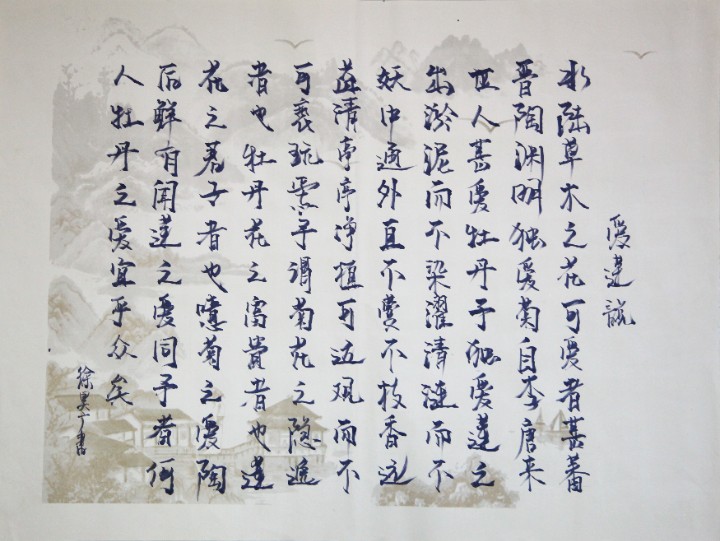 爱莲说
水陆草木之花可爱者甚蕃
晋陶渊明独爱菊自李唐来
世人甚爱牡丹予独爱莲之
出淤泥而不染濯清涟而不
妖中通外直不蔓不枝香远
益清亭亭净植可远观而不
可亵玩焉予謂菊花之隐逸
者也牡丹花之富貴者也莲
花之君子者也噫菊之爱陶
后鲜有闻莲之爱同予者何
人牡丹之爱宜乎众矣
徐丁書